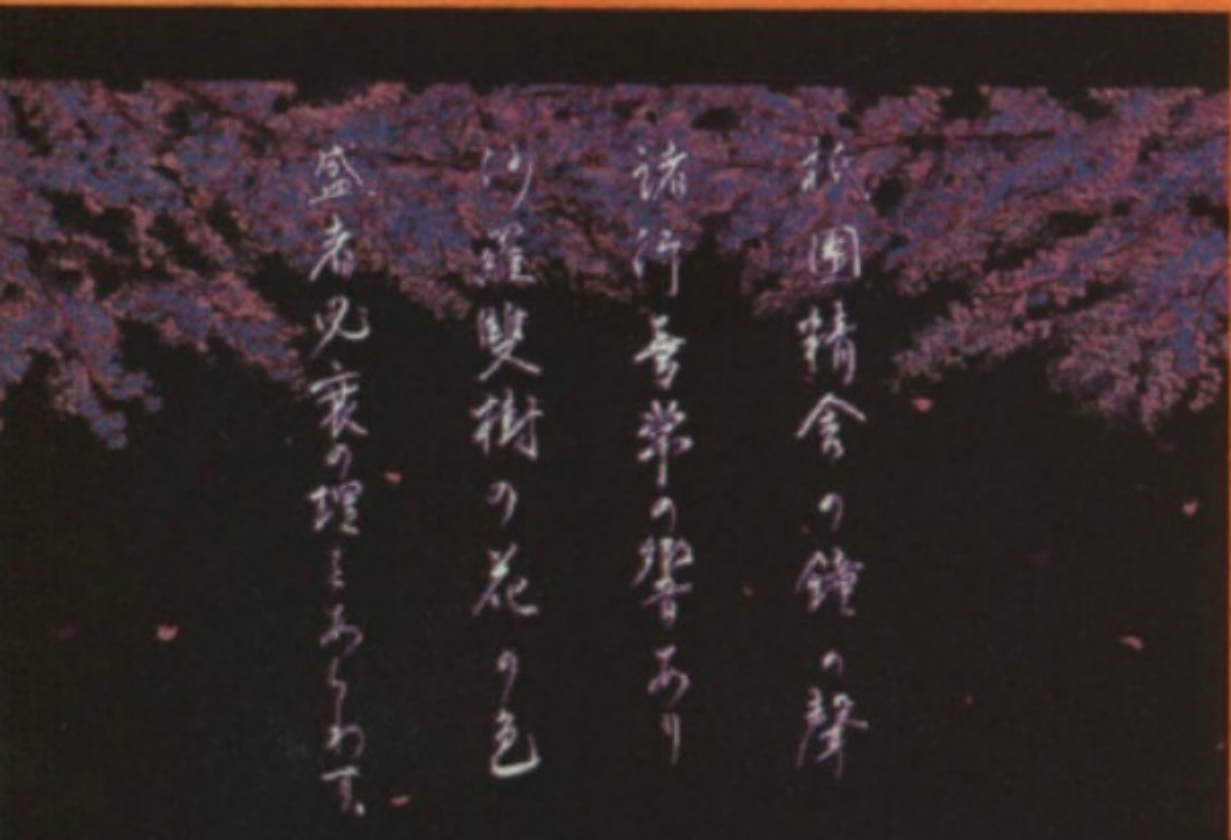 祇園精舎の鐘の聲
諸行無常の響あり
沙羅雙樹の花の色
盛者必衰の理をあらわす。